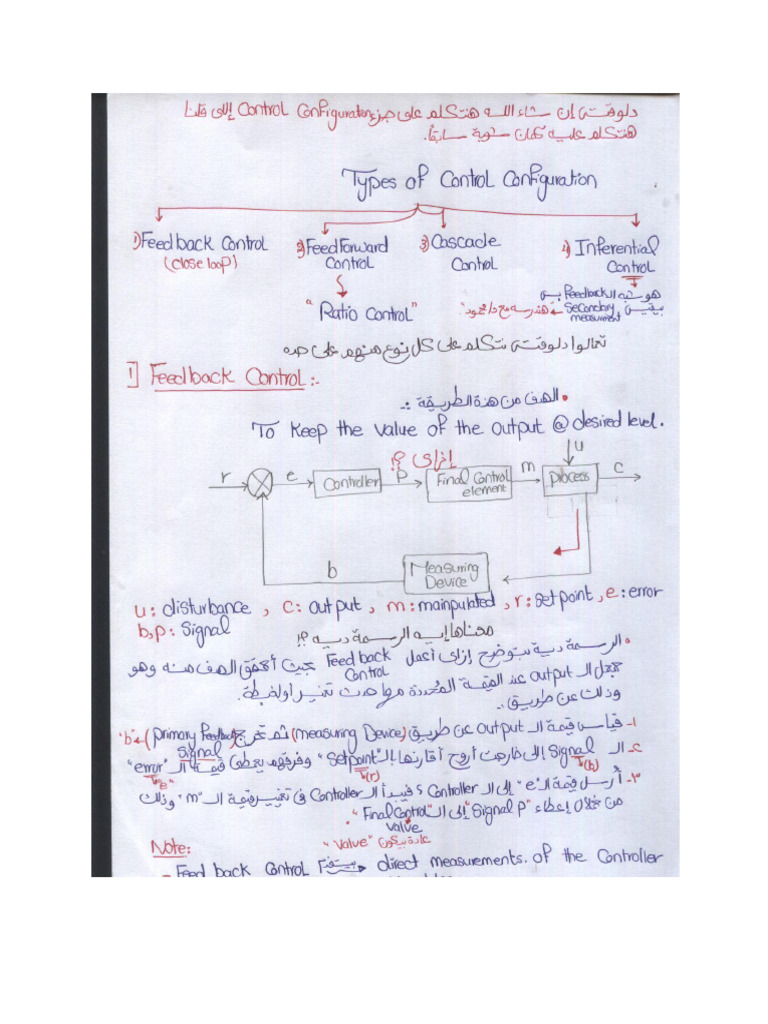 دلوقتى إن شاء الله هنتكلم على جزء Control Configuration إللى قلنا
هنتكلم عليه كمان شوية سابقاً.
Types of Control Configuration
1) Feedback Control (close loop)
2) Feed Forward Control
"Ratio Control"
3) Cascade Control
4) Inferential Control
هو شبه الـ Feedback بس
بيقيس Secondary measurment
تعالوا دلوقتى نتكلم على كل نوع منهم على حده
1] Feedback Control :-
• الهدف من هذة الطريقة :-
To Keep the value of the output @ desired level.
إزاى ؟!
r e Controller P Final Control element m Process u c
b Measuring Device
u: disturbance , c: output , m: mainpulated , r: setpoint , e: error
b,p: Signal
معناها إيه الرسمة ديه ؟!
• الرسمة ديه بتوضح إزاى أعمل Feed back Control بحيث أحقق الهدف منه وهو
جعل الـ output عند القيمة المحددة مهما حدث تغيير أو لخبطة.
وذلك عن طريق :-
١- قياس قيمة الـ output عن طريق (measuring Device) ثم تخرج (primary Feedback Signal) ← "b"
٢- الـ Signal إلى خارجت أروح أقارنها بالـ "Setpoint" وفرقهم يعطى قيمة الـ "error"
(b) (r) "e"
٣- أرسل قيمة الـ "e" إلى الـ Controller فيبدأ الـ Controller فى تغيير قيمة الـ "m" وذلك
من خلال إعطاء "Signal P" إلى الـ "Final Control"
value
عادة بيكون "Value"
Note:
- Feed back Control → direct measurements. of the Controller